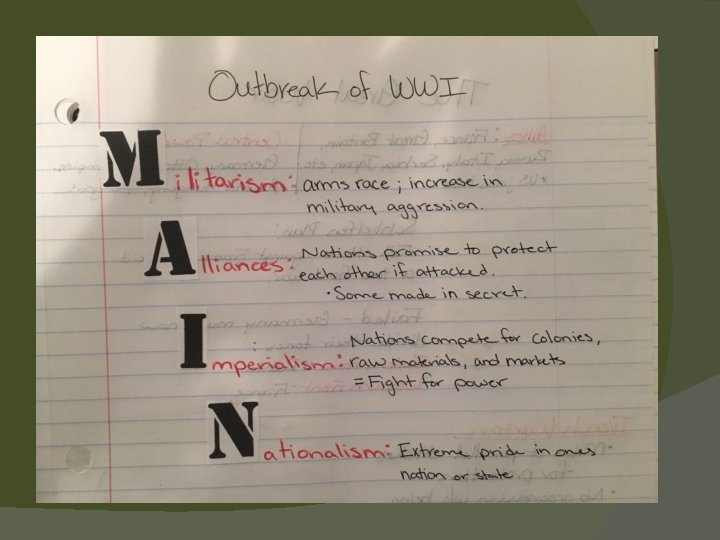 Outbreak of WWI
Militarism: arms race; increase in
military aggression.
Alliances: Nations promise to protect
each other if attacked.
· Some made in secret.
Imperialism: Nations compete for colonies,
raw materials, and markets
= Fight for power
Nationalism: Extreme pride in ones
nation or state